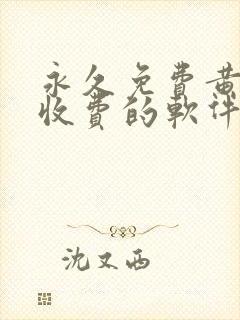 永久免費黃
收費的軟件
沈又西